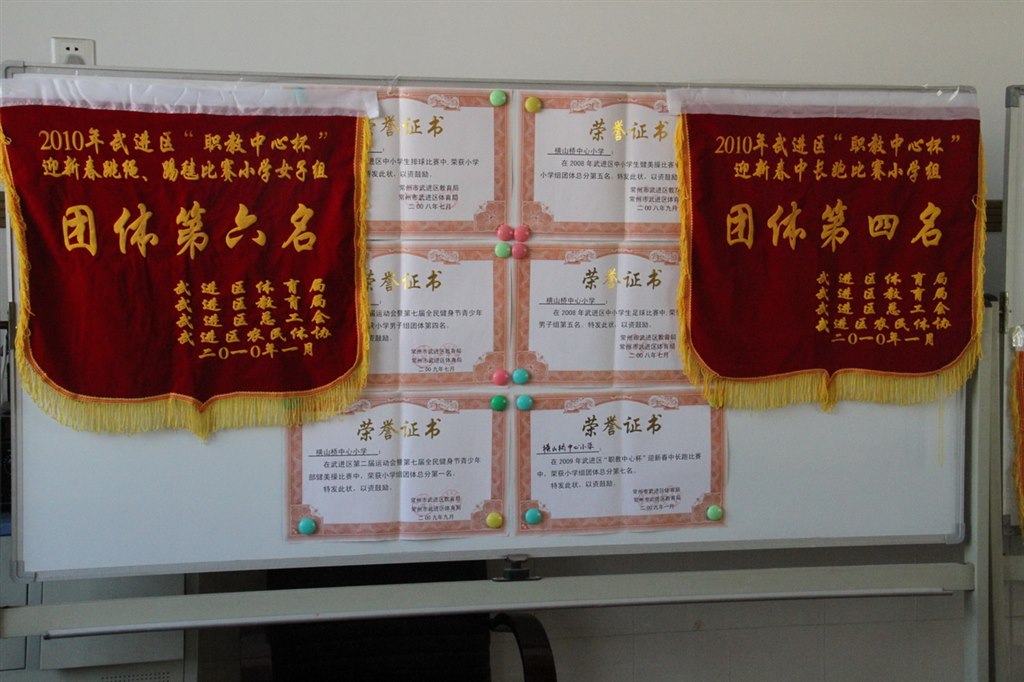 2010年武进区“职教中心杯”
迎新春跳绳、踢毽比赛小学女子组
团体第六名
武进区体育局
武进区教育局
武进区总工会
武进区农民体协
二〇一〇年一月
誉证书
区中小学生排球比赛中,荣获小学
特发此状,以资鼓励。
常州市武进区教育局
常州市武进区体育局
二〇〇八年七月
荣誉证书
横山桥中心小学:
在2008年武进区中小学生健美操比赛
小学组团体总分第五名。特发此状,以资鼓励
常州市武进区教育
常州市武进区体育
二〇〇八年九月
2010年武进区“职教中心杯”
迎新春中长跑比赛小学组
团体第四名
武进区体育局
武进区教育局
武进区总工会
武进区农民体协
二〇一〇年一月
誉证书
运动会暨第七届全民健身节青少年
获小学男子组团体第四名。
特发此状,以资鼓励。
常州市武进区教育局
常州市武进区体育局
二〇〇九年七月
荣誉证书
横山桥中心小学:
在2008年武进区中小学生足球比赛中,荣
男子组第五名。特发此状,以资鼓励。
常州市武进区教育局
常州市武进区体育局
二〇〇八年七月
荣誉证书
横山桥中心小学:
在武进区第二届运动会暨第七届全民健身节青少年
部健美操比赛中,荣获小学组团体总分第一名。
特发此状,以资鼓励。
常州市武进区教育局
常州市武进区体育局
二〇〇九年九月
荣誉证书
横山桥中心小学:
在2009年武进区“职教中心杯”迎新春中长跑比赛
中,荣获小学组团体总分第七名。
特发此状,以资鼓励。
常州市武进区体育局
常州市武进区教育局
二〇〇九年一月